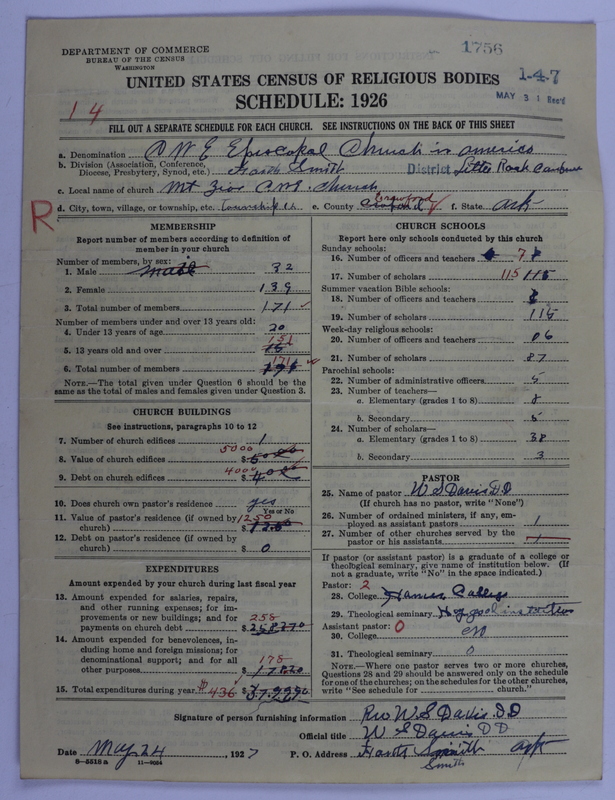 DEPARTMENT OF COMMERCE
BUREAU OF THE CENSUS
WASHINGTON
1756
UNITED STATES CENSUS OF RELIGIOUS BODIES
1-4-7
SCHEDULE: 1926
MAY 31 Rec'd
14
FILL OUT A SEPARATE SCHEDULE FOR EACH CHURCH. SEE INSTRUCTIONS ON THE BACK OF THIS SHEET
a. Denomination C M E Episcopal Church in america
b. Division (Association, Conference, Diocese, Presbytery, Synod), etc. Smith District Little Rock
c. Local name of church Mt Zion C.M.E. Church
R
d. City, town, village, or township, etc. Township e. County Crawford f. State Ark
MEMBERSHIP
Report number of members according to definition of member in your church
Number of members, by sex:
1. Male 32
2. Female 139
3. Total number of members 171
Number of members under and over 13 years old:
4. Under 13 years of age 20
5. 13 years old and over 151
6. Total number of members 171
NOTE.—The total given under Question 6 should be the same as the total of males and females given under Question 3.
CHURCH BUILDINGS
See instructions, paragraphs 10 to 12
7. Number of church edifices 1
8. Value of church edifices $ 5000
9. Debt on church edifices $ 4000
10. Does church own pastor's residence yes
Yes or No
11. Value of pastor's residence (if owned by church) $ 1250
12. Debt on pastor's residence (if owned by church) $ 0
EXPENDITURES
Amount expended by your church during last fiscal year
13. Amount expended for salaries, repairs, and other running expenses; for improvements or new buildings; and for payments on church debt $ 258
14. Amount expended for benevolences, including home and foreign missions; for denominational support; and for all other purposes $ 178
15. Total expenditures during year $ 436
CHURCH SCHOOLS
Report here only schools conducted by this church
Sunday schools:
16. Number of officers and teachers 7
17. Number of scholars 115
Summer vacation Bible schools:
18. Number of officers and teachers 8
19. Number of scholars 115
Week-day religious schools:
20. Number of officers and teachers 06
21. Number of scholars 87
Parochial schools:
22. Number of administrative officers 5
23. Number of teachers—
a. Elementary (grades 1 to 8) 8
b. Secondary 5
24. Number of scholars—
a. Elementary (grades 1 to 8) 38
b. Secondary 3
PASTOR
25. Name of pastor W S Davis D D
(If church has no pastor, write "None")
26. Number of ordained ministers, if any, employed as assistant pastors 1
27. Number of other churches served by the pastor or his assistants 1
If pastor (or assistant pastor) is a graduate of a college or theological seminary, give name of institution below. (If not a graduate, write "No" in the space indicated.)
Pastor: 2
28. College College
29. Theological seminary
Assistant pastor: 0
30. College
31. Theological seminary 0
NOTE.—Where one pastor serves two or more churches, Questions 28 and 29 should be answered only on the schedule for one of the churches; on the schedules for the other churches, write "See schedule for ________ church."
Signature of person furnishing information Rev W S Davis, D D
Official title W S Davis D D
Date May 24, 1927 P. O. Address Smith Ark
Smith
8—5518 a 11—9034